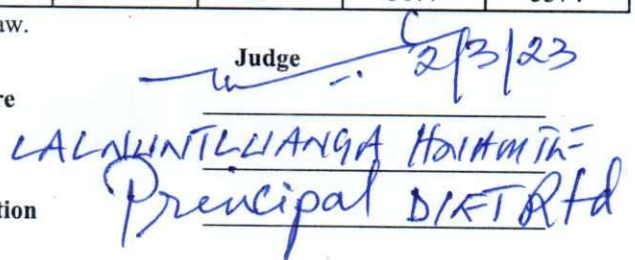 aw.
Judge 2/3/23
re
LALNUNTLUANGA
tion Principal DIET Rtd